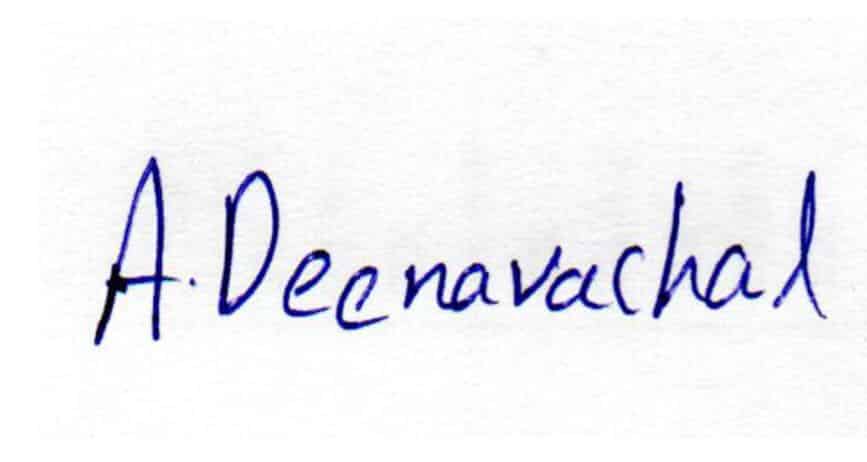 A. Deenavachal